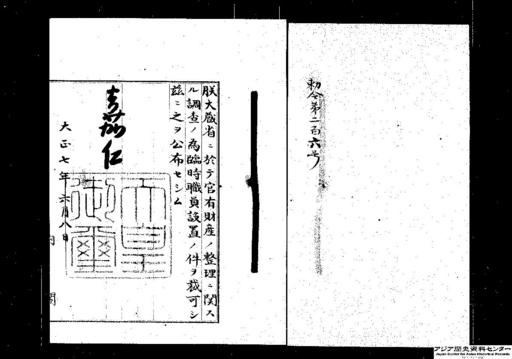 勅令第二百六号
朕大蔵省ニ於テ官有財産ノ整理ニ関ス
ル調査ノ為臨時職員設置ノ件ヲ裁可シ
茲ニ之ヲ公布セシム
嘉仁
天皇御璽
大正七年六月八日
アジア歴史資料センター
Japan Center for Asian Historical Records